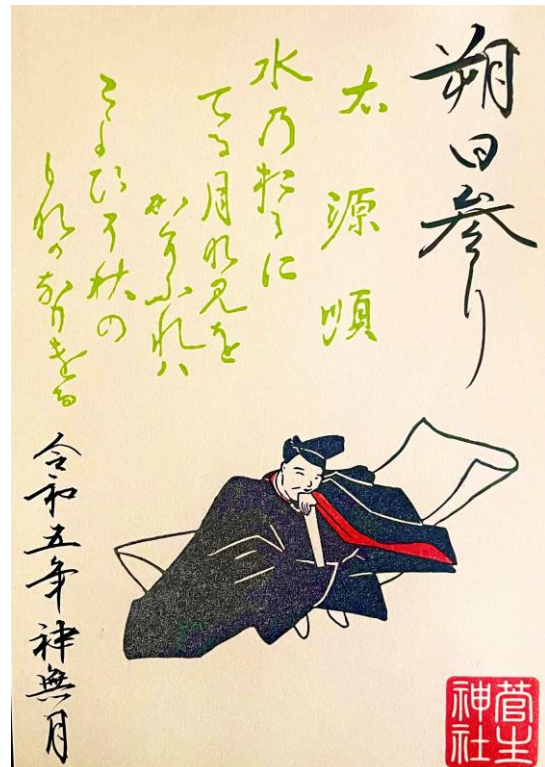 朔日参り
右 源 順
水乃おもに
てる月な見を
かそふれハ
こよひそ秋の
もなかなりける
令和五年 神無月
菅生
神社